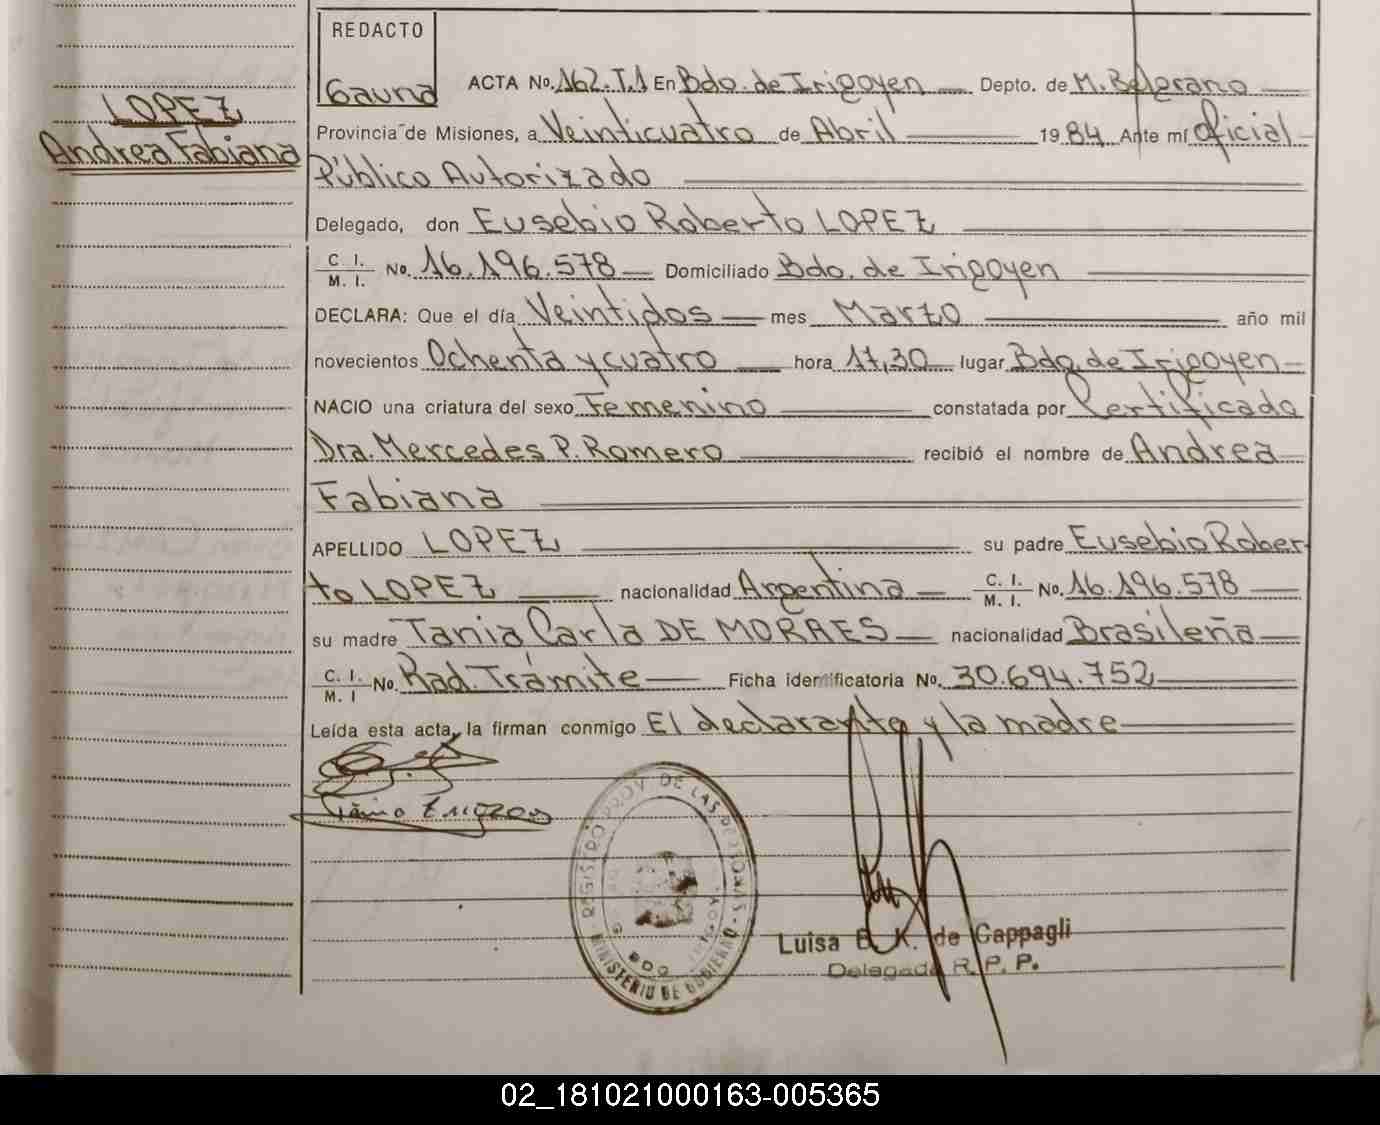 REDACTO
Gauna
LOPEZ
Andrea Fabiana
ACTA No. 162.T.1 En Bdo. de Irigoyen Depto. de M. Belgrano
Provincia de Misiones, a Veinticuatro de Abril 19 84 Ante mí Oficial
Público Autorizado
Delegado, don Eusebio Roberto LOPEZ
C. I. / M. I. No. 16.196.578 Domiciliado Bdo. de Irigoyen
DECLARA: Que el día Veintidos mes Marzo año mil
novecientos Ochenta y cuatro hora 17,30 lugar Bdo. de Irigoyen
NACIO una criatura del sexo Femenino constatada por Certificado
Dra. Mercedes P. Romero recibió el nombre de Andrea
Fabiana
APELLIDO LOPEZ su padre Eusebio Rober-
to LOPEZ nacionalidad Argentina C. I. / M. I. No. 16.196.578
su madre Tania Carla DE MORAES nacionalidad Brasileña
C. I. / M. I No. Rad. Trámite Ficha identificatoria No. 30.694.752
Leída esta acta, la firman conmigo El declarante y la madre
REGISTRO PROV. DE LAS PERSONAS
MINISTERIO DE GOBIERNO
Luisa E. K. de Cappagli
Delegada R. P. P.
02_181021000163-005365